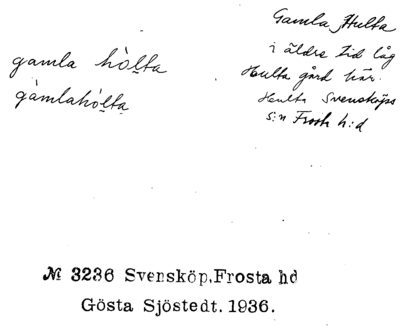 gamla hò̤lta
gàmlahó̤lta
Gamla Hulta
i äldre tid låg
Hulta gård här.
Hulta Svensköps
s:n Frosta h:d
№ 3236 Svensköp, Frosta hd
Gösta Sjöstedt. 1936.